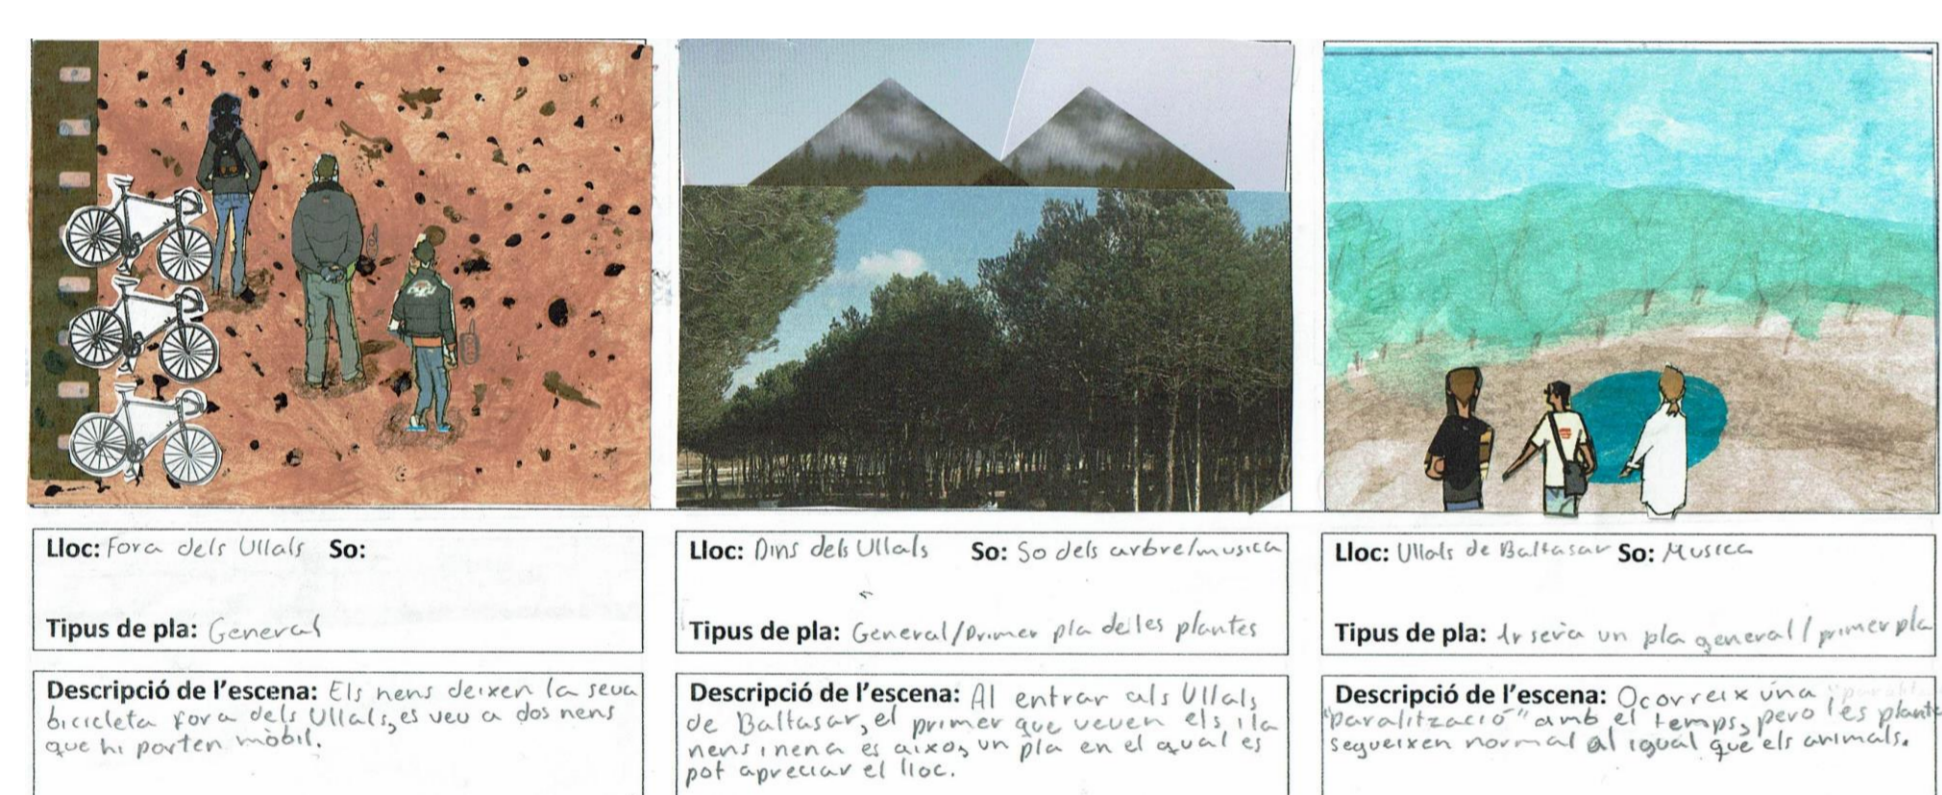 Lloc: Fora dels Ullals So:
Tipus de pla: General
Descripció de l'escena: Els nens deixen la seva
bicicleta fora dels Ullals, es veu a dos nens
que hi porten mòbil.
Lloc: Dins dels Ullals So: So dels arbre/musica
Tipus de pla: General/Primer pla de les plantes
Descripció de l'escena: Al entrar als Ullals
de Baltasar, el primer que veuen els i la
nens i nena es aixo, un pla en el qual es
pot apreciar el lloc.
Lloc: Ullals de Baltasar So: Musica
Tipus de pla: 1r seria un pla general/primer pla
Descripció de l'escena: Ocorreix una
"paralització" amb el temps, pero les plante
segueixen normal al igual que els animals.